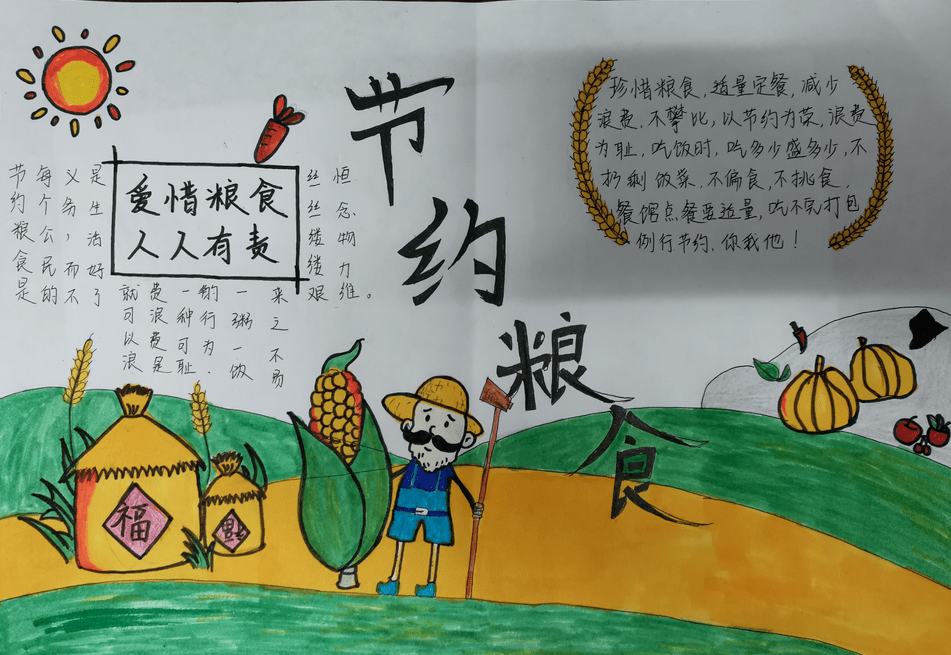 节约粮食
爱惜粮食
人人有责
节约粮食是
每个公民的
义务，而不
是生活好了
就可以浪
费浪费是
一种可耻
的行为.
一粥一饭
来之不易
丝丝缕缕艰
恒念物力维。
珍惜粮食,适量定餐,减少
浪费,不攀比,以节约为荣,浪费
为耻,吃饭时,吃多少盛多少,不
扔剩饭菜,不偏食,不挑食.
餐馆点餐要适量,吃不完打包
例行节约.你我他!
福
福